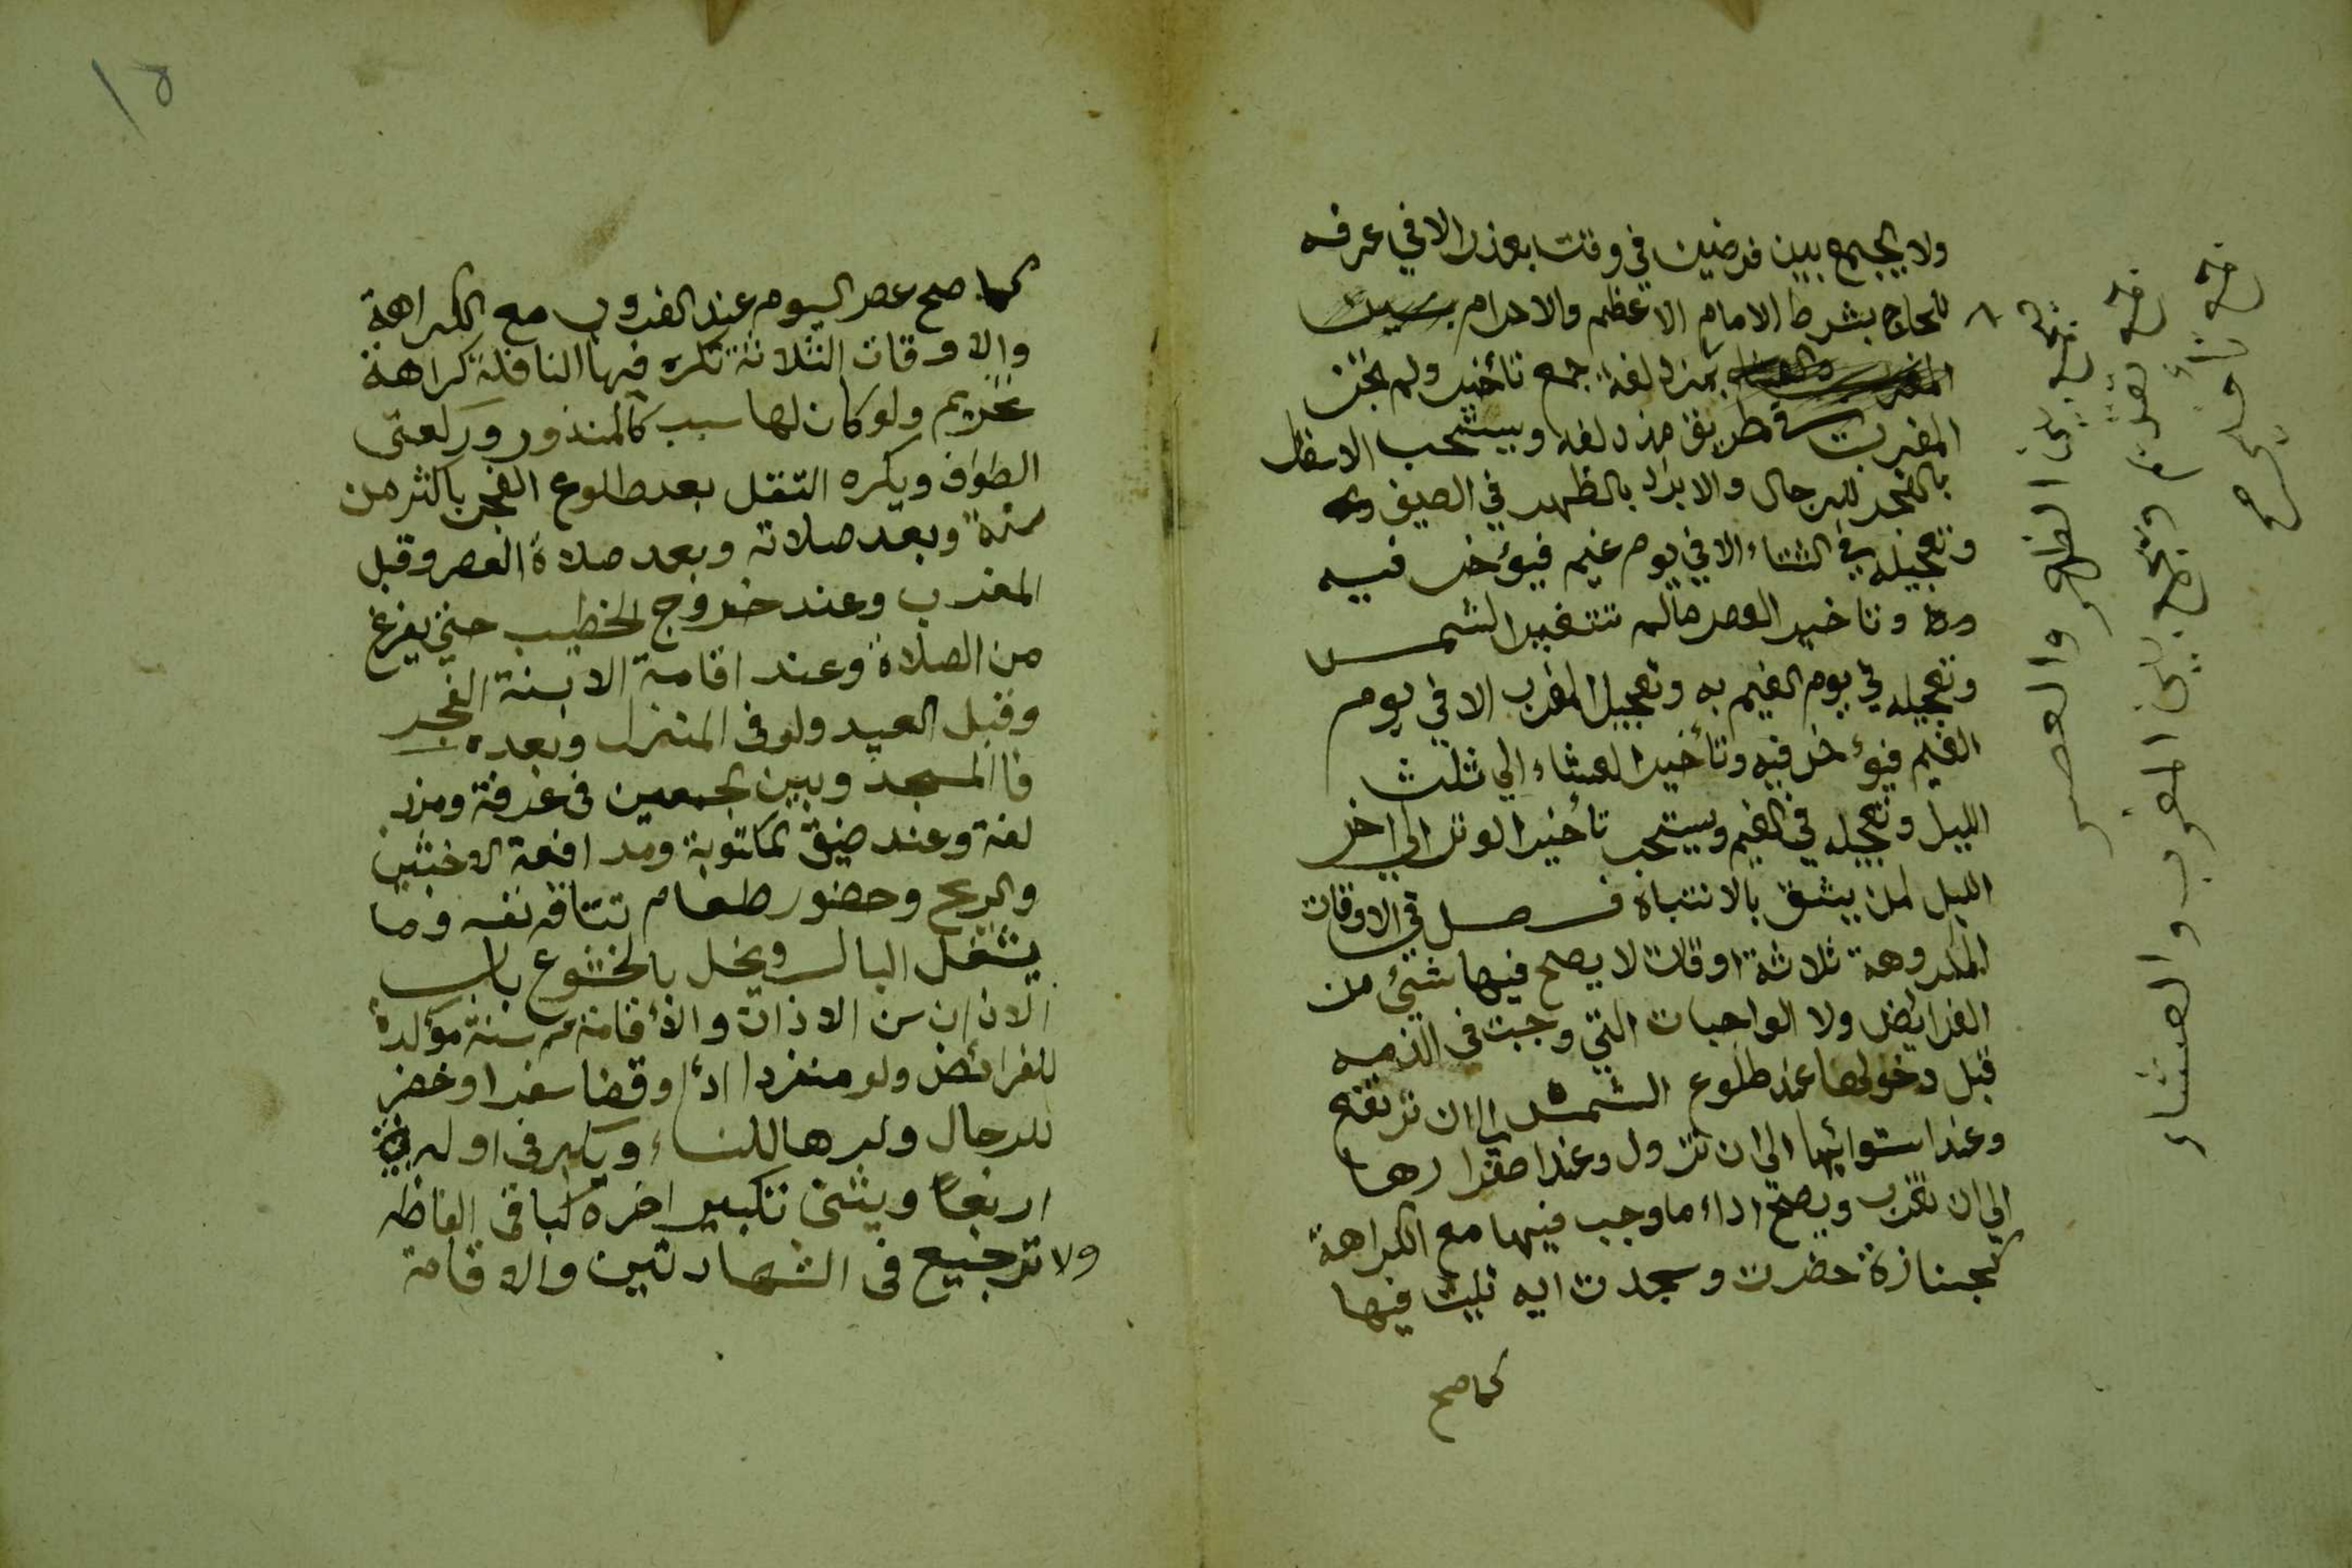 ولا يجمع بين فرضين في وقت بعذر الا في عرفه
للحاج بشرط الامام الاعظم والاحرام
بمزدلفة جمع تأخير ولم تجز
المغرب في طريق مزدلفه ويستحب الاسفار
بالفجر للرجال والابراد بالظهر في الصيف
وتعجيله في الشتاء الا في يوم غيم فيؤخر فيه
وتاخير العصر مالم تتغير الشمس
وتعجيله في يوم الغيم به وتعجيل المغرب الا في يوم
الغيم فيؤخر فيه وتأخير العشاء الي ثلث
الليل وتعجيله في الغيم ويستحب تأخير الوتر الي اخر
الليل لمن يثق بالانتباه فصل في الاوقات
المكروهة ثلاثة اوقات لا يصح فيها شيئ من
الفرايض ولا الواجبات التي وجبت في الذمه
قبل دخولها عند طلوع الشمس الي ان ترتفع
وعند استوائها الي ان تزول وعند اصفرارها
الي ان تغرب ويصح اداء ما وجب فيها مع الكراهة
كجنازة حضرت وسجدت ايه تليت فيها
كما صح
فيجمع بين الظهر والعصر
جمع تقديم ويجمع بين المغرب والعشاء
جمع تأخير صح
١٥
كما صح عصر اليوم عند الغروب مع الكراهة
والاوقات الثلاثة تكره فيها النافلة كراهة
تحريم ولو كان لها سبب كالمنذور وركعتى
الطواف ويكره التنفل بعد طلوع الفجر باكثر من
سنة وبعد صلاته وبعد صلاة العصر وقبل
المغرب وعند خروج الخطيب حتى يفرغ
من الصلاة وعند اقامة الا سنة الفجر
وقبل العيد ولو فى المنزل وبعده
فاالمسجد وبين الجمعين فى عرفة ومزد
لفة وعند ضيق المكتوبة ومدافعة الاخبثين
والريح وحضور طعام تتتاقه نفسه وما
يشغل البال ويخل بالخشوع باب
الاذان سن الاذان والأقامة سنة مؤكدة
للفرائض ولو منفردا ادأ او قضا سفرا او حضر
للرجال وكرها للنساء ويكبر فى اوله
اربعًا ويثنى تكبير اخره كباقى الفاظه
ولا ترجيع فى الشهادتين والاقامة